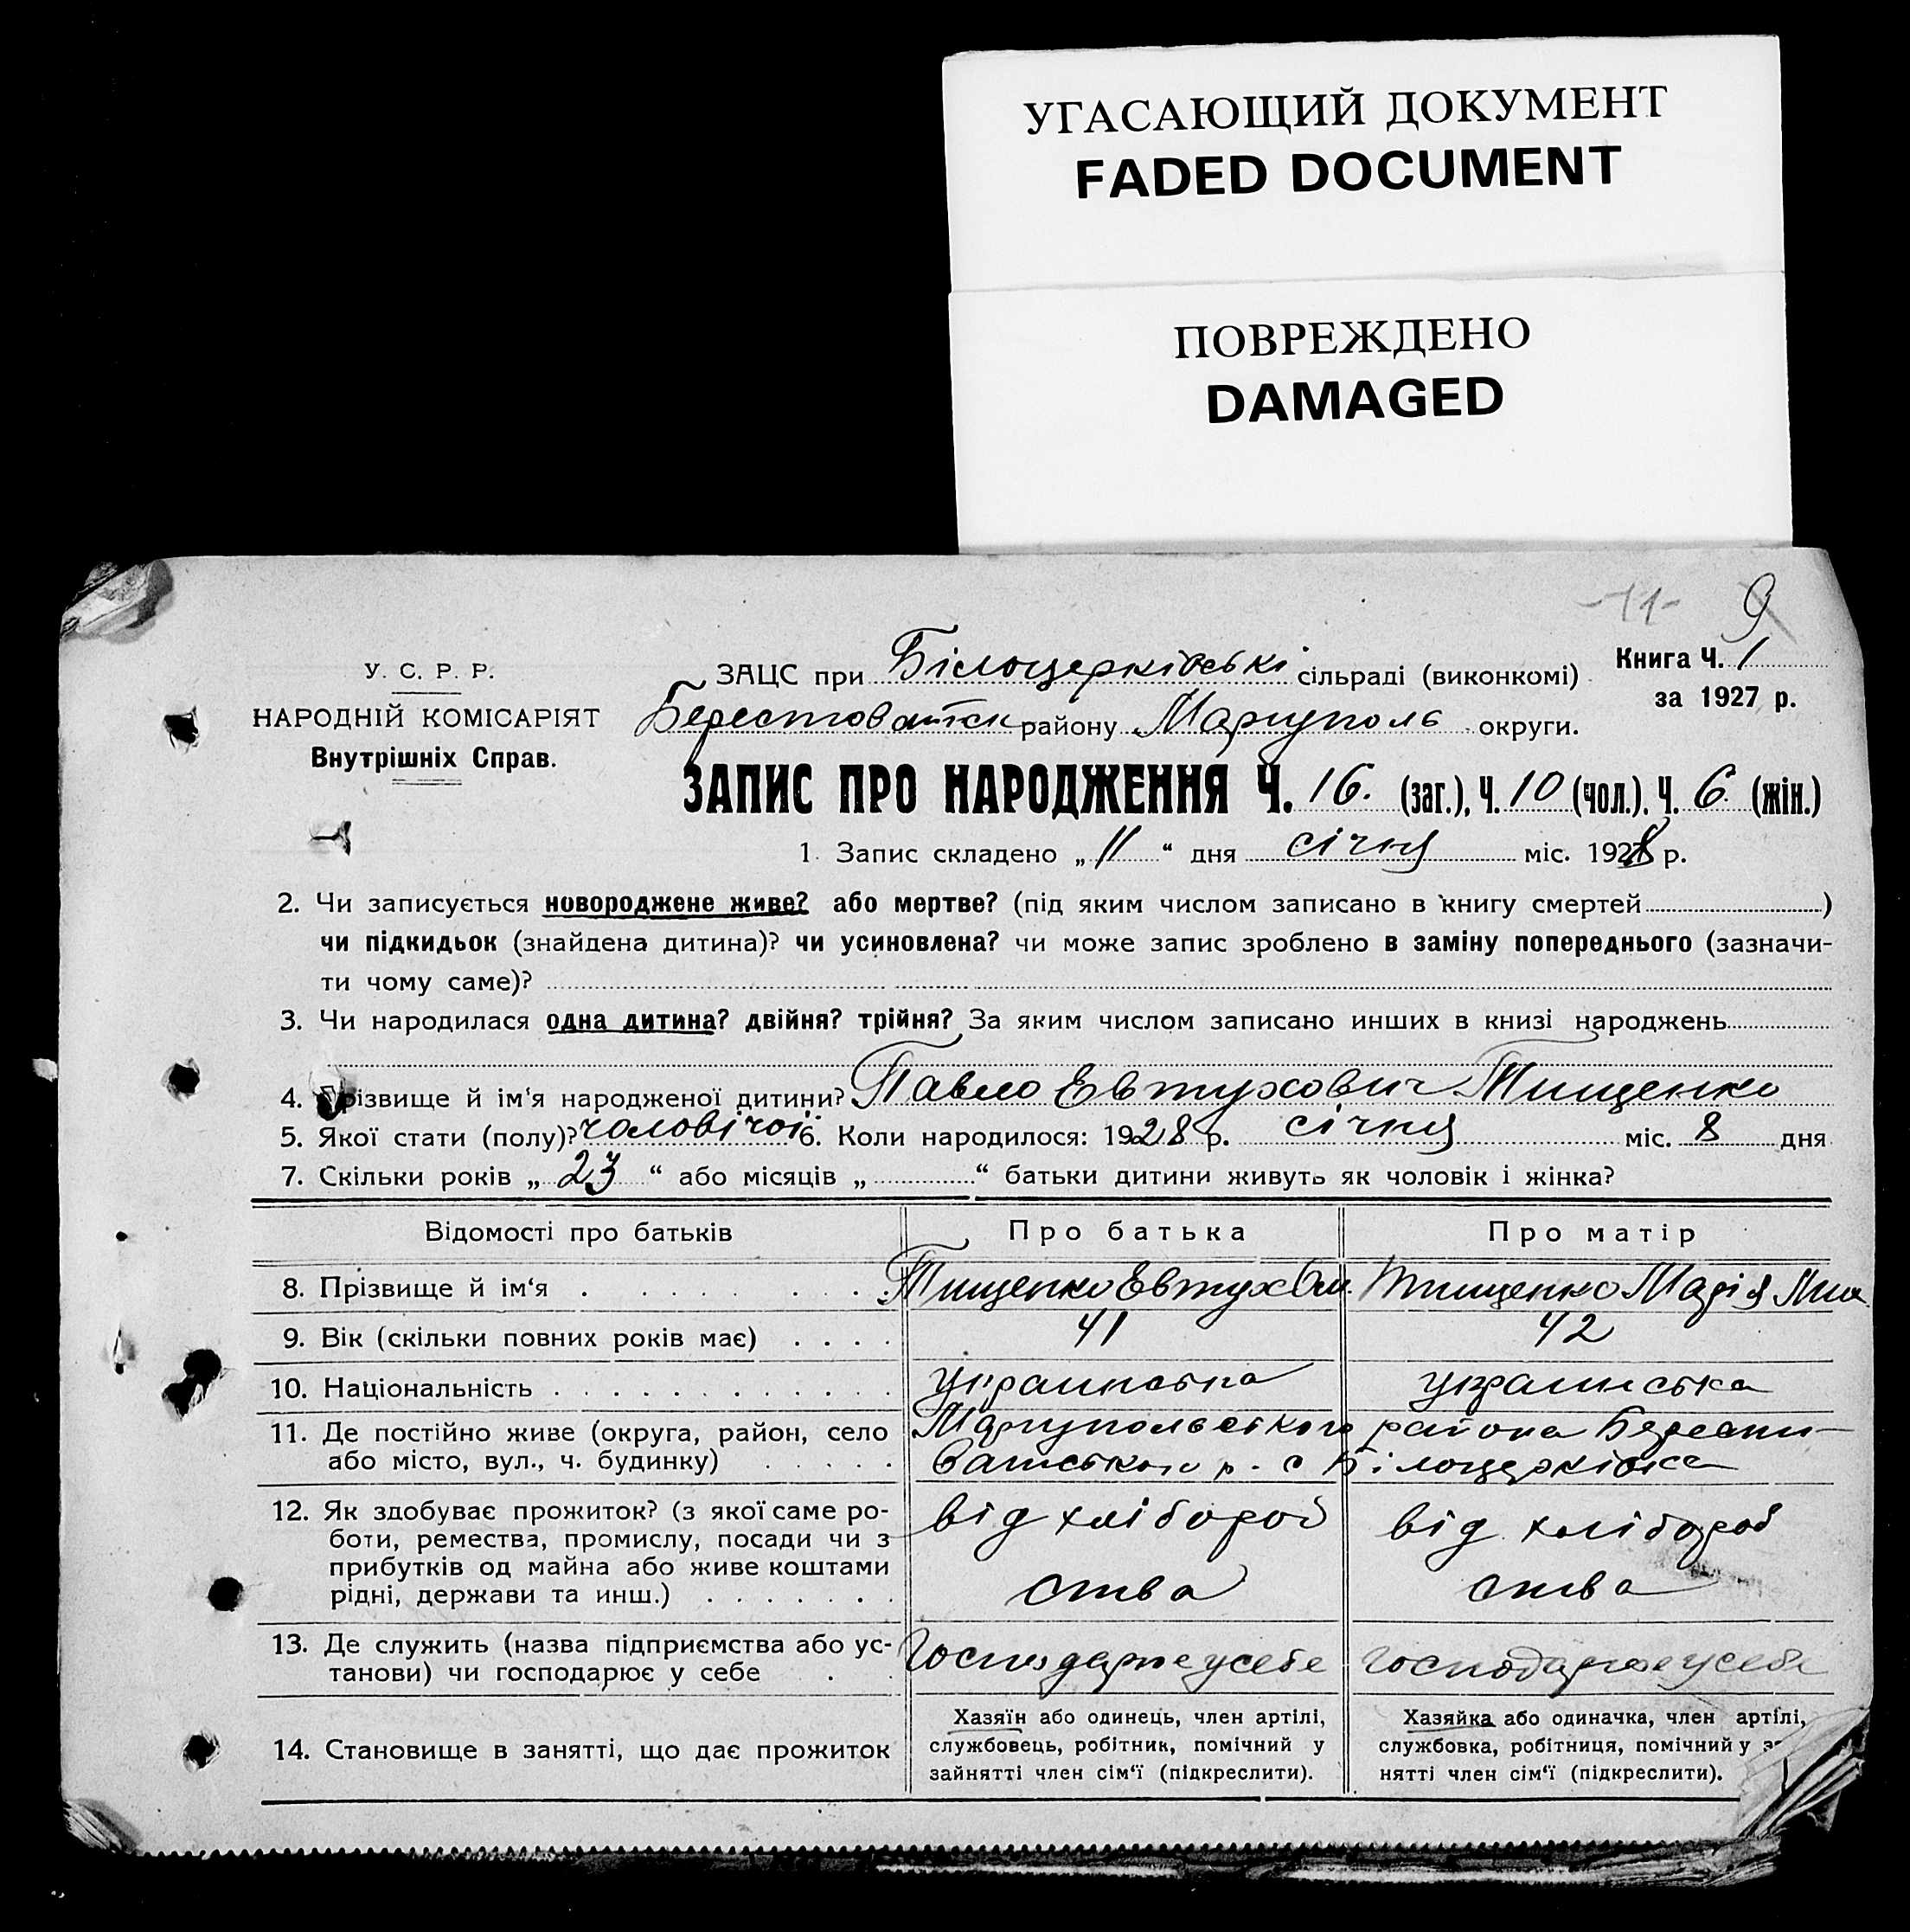 УГАСАЮЩИЙ ДОКУМЕНТ
FADED DOCUMENT
ПОВРЕЖДЕНО
DAMAGED
-11- 9
У. С. Р. Р.
НАРОДНІЙ КОМІСАРІЯТ
Внутрішніх Справ.
ЗАЦС при Білоцерківські сільраді (виконкомі)
Книга Ч. 1
за 1927 р.
району Маріуполь округи.
ЗАПИС ПРО НАРОДЖЕННЯ Ч. 16. (заг.), Ч. 10 (чол.). Ч. 6. (жін.)
1. Запис складено „ 11 “ дня січня міс. 1928 р.
2. Чи записується новороджене живе? або мертве? (під яким числом записано в книгу смертей )
чи підкидьок (знайдена дитина)? чи усиновлена? чи може запис зроблено в заміну попереднього (зазначи-
ти чому саме)?
3. Чи народилася одна дитина? двійня? трійня? За яким числом записано инших в книзі народжень
4. Прізвище й ім‘я народженої дитини? Павло Евтухович Тищенко
5. Якої стати (полу)? чоловічої 6. Коли народилося: 1928 р. січня міс. 8 дня
7. Скільки років „ 23 “ або місяців „ “ батьки дитини живуть як чоловік і жінка?
Відомості про батьків Про батька Про матір
8. Прізвище й ім‘я Тищенко Евтух Тищенко Марія
9. Вік (скільки повних років має) 41 42
10. Національність украинська украинська
11. Де постійно живе (округа, район, село Маріупольського района
або місто, вул., ч. будинку) р. с Білоцерківка
12. Як здобуває прожиток? (з якої саме ро-
боти, ремества, промислу, посади чи з
прибутків од майна або живе коштами
рідні, держави та инш.)
від хлібороб від хлібороб
ства ства
13. Де служить (назва підприємства або ус-
танови) чи господарює у себе
господарює усебе господарює усебе
14. Становище в занятті, що дає прожиток
Хазяїн або одинець, член артілі,
службовець, робітник, помічний у
зайнятті член сім‘ї (підкреслити).
Хазяйка або одиначка, член артілі,
службовка, робітниця, помічний у за-
нятті член сім‘ї (підкреслити).